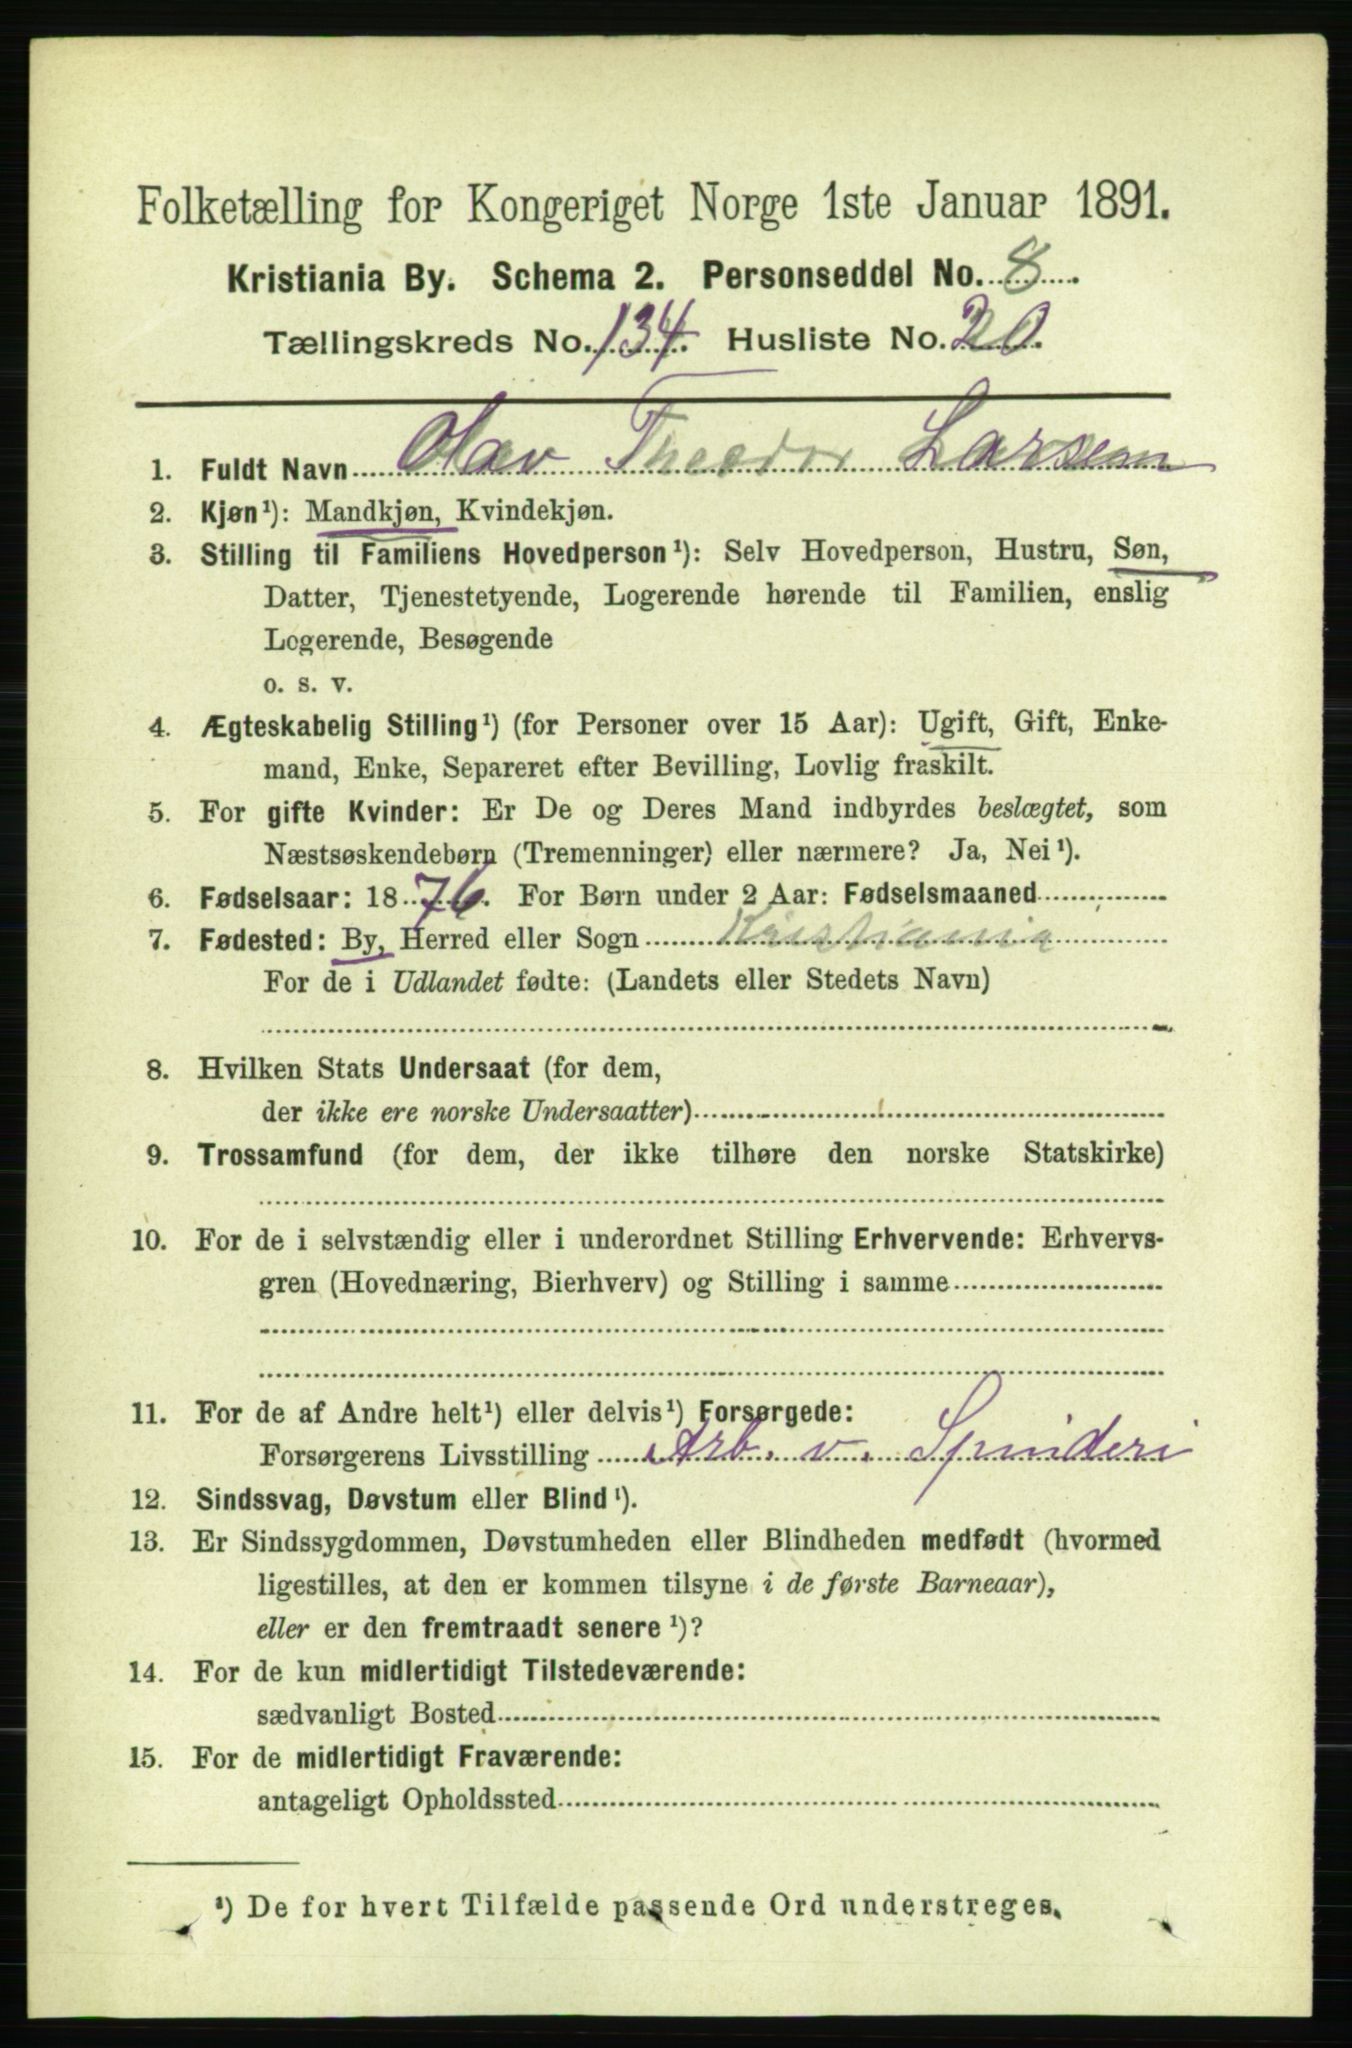 Folketælling for Kongeriget Norge 1ste Januar 1891.
Kristiania By. Schema 2. Personseddel No. 8.
Tællingskreds No. 134. Husliste No. 20.
1. Fuldt Navn Olav Theodor Larsen
2. Kjøn¹): Mandkjøn, Kvindekjøn.
3. Stilling til Familiens Hovedperson¹): Selv Hovedperson, Hustru, Søn,
Datter, Tjenestetyende, Logerende hørende til Familien, enslig
Logerende, Besøgende
o. s. v.
4. Ægteskabelig Stilling¹) (for Personer over 15 Aar): Ugift, Gift, Enke-
mand, Enke, Separeret efter Bevilling, Lovlig fraskilt.
5. For gifte Kvinder: Er De og Deres Mand indbyrdes beslægtet, som
Næstsøskendebørn (Tremenninger) eller nærmere? Ja, Nei¹).
6. Fødselsaar: 1876. For Børn under 2 Aar: Fødselsmaaned
7. Fødested: By, Herred eller Sogn Kristiania
For de i Udlandet fødte: (Landets eller Stedets Navn)
8. Hvilken Stats Undersaat (for dem,
der ikke ere norske Undersaatter)
9. Trossamfund (for dem, der ikke tilhøre den norske Statskirke)
10. For de i selvstændig eller i underordnet Stilling Erhvervende: Erhvervs-
gren (Hovednæring, Bierhverv) og Stilling i samme
11. For de af Andre helt¹) eller delvis¹) Forsørgede:
Forsørgerens Livsstilling Arb. v. Spinderi
12. Sindssvag, Døvstum eller Blind¹).
13. Er Sindssygdommen, Døvstumheden eller Blindheden medfødt (hvormed
ligestilles, at den er kommen tilsyne i de første Barneaar),
eller er den fremtraadt senere¹)?
14. For de kun midlertidigt Tilstedeværende:
sædvanligt Bosted
15. For de midlertidigt Fraværende:
antageligt Opholdssted
¹) De for hvert Tilfælde passende Ord understreges.